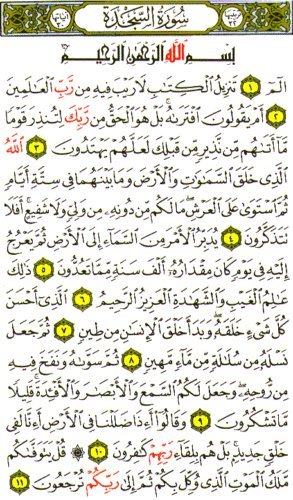 سُورَةُ السَّجْدَةِ
بِسْمِ اللَّهِ الرَّحْمَٰنِ الرَّحِيمِ
الٓمٓ ١ تَنزِيلُ الْكِتَٰبِ لَا رَيْبَ فِيهِ مِن رَّبِّ الْعَٰلَمِينَ
٢ أَمْ يَقُولُونَ افْتَرَىٰهُ ۚ بَلْ هُوَ الْحَقُّ مِن رَّبِّكَ لِتُنذِرَ قَوْمًا
مَّا أَتَىٰهُم مِّن نَّذِيرٍ مِّن قَبْلِكَ لَعَلَّهُمْ يَهْتَدُونَ ٣ اللَّهُ
الَّذِي خَلَقَ السَّمَٰوَٰتِ وَالْأَرْضَ وَمَا بَيْنَهُمَا فِي سِتَّةِ أَيَّامٍ
ثُمَّ اسْتَوَىٰ عَلَى الْعَرْشِ ۖ مَا لَكُم مِّن دُونِهِ مِن وَلِيٍّ وَلَا شَفِيعٍ ۚ أَفَلَا
تَتَذَكَّرُونَ ٤ يُدَبِّرُ الْأَمْرَ مِنَ السَّمَاءِ إِلَى الْأَرْضِ ثُمَّ يَعْرُجُ
إِلَيْهِ فِي يَوْمٍ كَانَ مِقْدَارُهُ أَلْفَ سَنَةٍ مِّمَّا تَعُدُّونَ ٥ ذَٰلِكَ
عَٰلِمُ الْغَيْبِ وَالشَّهَٰدَةِ الْعَزِيزُ الرَّحِيمُ ٦ الَّذِي أَحْسَنَ
كُلَّ شَيْءٍ خَلَقَهُ ۖ وَبَدَأَ خَلْقَ الْإِنسَٰنِ مِن طِينٍ ٧ ثُمَّ جَعَلَ
نَسْلَهُ مِن سُلَٰلَةٍ مِّن مَّاءٍ مَّهِينٍ ٨ ثُمَّ سَوَّىٰهُ وَنَفَخَ فِيهِ
مِن رُّوحِهِ ۖ وَجَعَلَ لَكُمُ السَّمْعَ وَالْأَبْصَٰرَ وَالْأَفْـِٔدَةَ ۚ قَلِيلًا
مَّا تَشْكُرُونَ ٩ وَقَالُوا أَءِذَا ضَلَلْنَا فِي الْأَرْضِ أَءِنَّا لَفِي
خَلْقٍ جَدِيدٍ ۚ بَلْ هُم بِلِقَاءِ رَبِّهِمْ كَٰفِرُونَ ١٠ قُلْ يَتَوَفَّىٰكُم
مَّلَكُ الْمَوْتِ الَّذِي وُكِّلَ بِكُمْ ثُمَّ إِلَىٰ رَبِّكُمْ تُرْجَعُونَ ١١